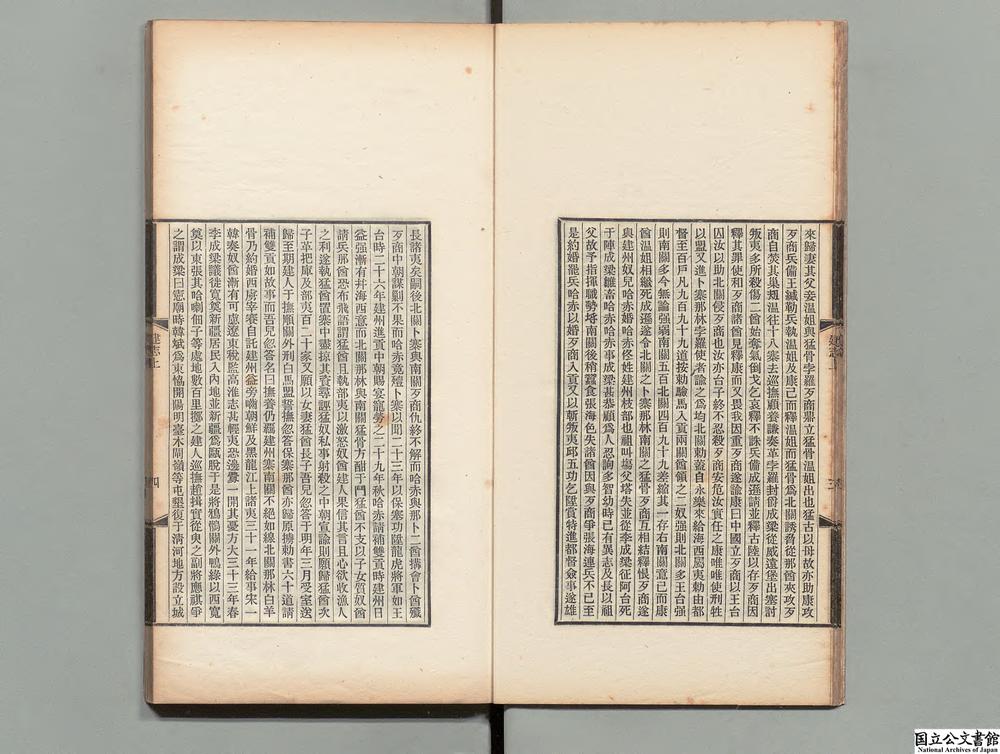 來歸妻其父妾溫姐與猛骨孛羅歹商鼎立猛骨溫姐出也猛古以母故亦助康攻
歹商兵備王緘勒兵執溫姐及康已而釋溫姐而猛骨爲北關誘脅從那酋夾攻歹
商自焚其巢規溫徃十八寨去巡撫顧養謙奏革孛羅封爵成梁從威遠堡出塞討
叛夷多所殺傷二酋始奪氣倒戈乞哀釋不誅兵備成遜請並釋古陸以存歹商因
釋其罪使和歹商諸酋見釋康而又畏我因重歹商遂諭康曰中國立歹商以王台
囚汝以助北關侵歹商也汝亦台子終不忍殺歹商妾危汝實任之康唯唯使刑牲
以盟又進卜寨那林孛羅使者諭之爲均北關勅蓋自永樂來給海西屬夷勅由都
督至百戶凡九百九十九道按勅驗馬入貢兩關酋領之二奴强則北關多王台强
則南關多今無論强弱南關五百北關四百九十九差縮其一存右南關意已而康
酋溫姐相繼死成遜遂令北關之卜寨那林南關之猛骨歹商互相結釋恨歹商遂
與建州奴兒哈赤婚哈赤佟姓建州枝部也祖叫塲父塔失並從李成梁征阿台死
于陣成梁雛畜哈赤哈赤事成梁甚恭顧爲人忍詢多智幼時已有異志及長以祖
父故予指揮職勢埒南關後稍蠶食張海色失諸酋因與歹商爭張海連兵不已至
是約婚罷兵哈赤以婚歹商入貢又以斬叛夷邱五功乞陞賞特進都督僉事遂雄
長諸夷矣嗣後北關卜寨與南關歹商仇終不解而哈赤與那卜二酋搆會卜酋殲
歹商中朝謀剿不果而哈赤竟殪卜寨以聞二十三年以保塞功陞龍虎將軍如王
台時二十六年建州進貢中朝賜宴寵勞之二十九年秋哈赤請補雙貢時建州日
益强漸有幷海西意而北關那林與南關猛骨方酣于鬥猛酋不支以子女質奴酋
請兵那酋恐布飛語謂猛酋且執部夷以激怒奴酋建人果信其言且心欲收漁人
之利遂執猛酋置寨中盡掠其資尋誣猛奴私事射殺之中朝宣諭則願歸猛酋次
子革把庫及部夷百二十家又願以女妻猛酋長子吾兒忽答于明年三月受室送
歸至期建人于撫順關外刑白馬盟誓撫忽答保寨那酋亦歸原擄勅書六十道請
補雙貢如故事而吾兒忽答名曰撫養仍覊建州寨南關不絕如線北關那林白羊
骨乃約婚西虜宰賽自託建州益旁嚙朝鮮及黑龍江上諸夷三十一年給事宋一
韓奏奴酋漸有可慮遼東稅監高淮志甚輕夷恐邊釁一開其憂方大三十三年春
李成梁議徙寬奠新疆居民入內地並新疆爲甌脫于是將鴉鶻關外鴨綠以西寬
奠以東張其哈喇佃子等處地數百里擲之建人巡撫趙揖實從臾之副將應祺爭
之謂成梁曰憲廟時韓斌爲東協開陽明臺木閘嶺等屯墾復于淸河地方設立城
建志上
三
建志上
四
国立公文書館
National Archives of Japan